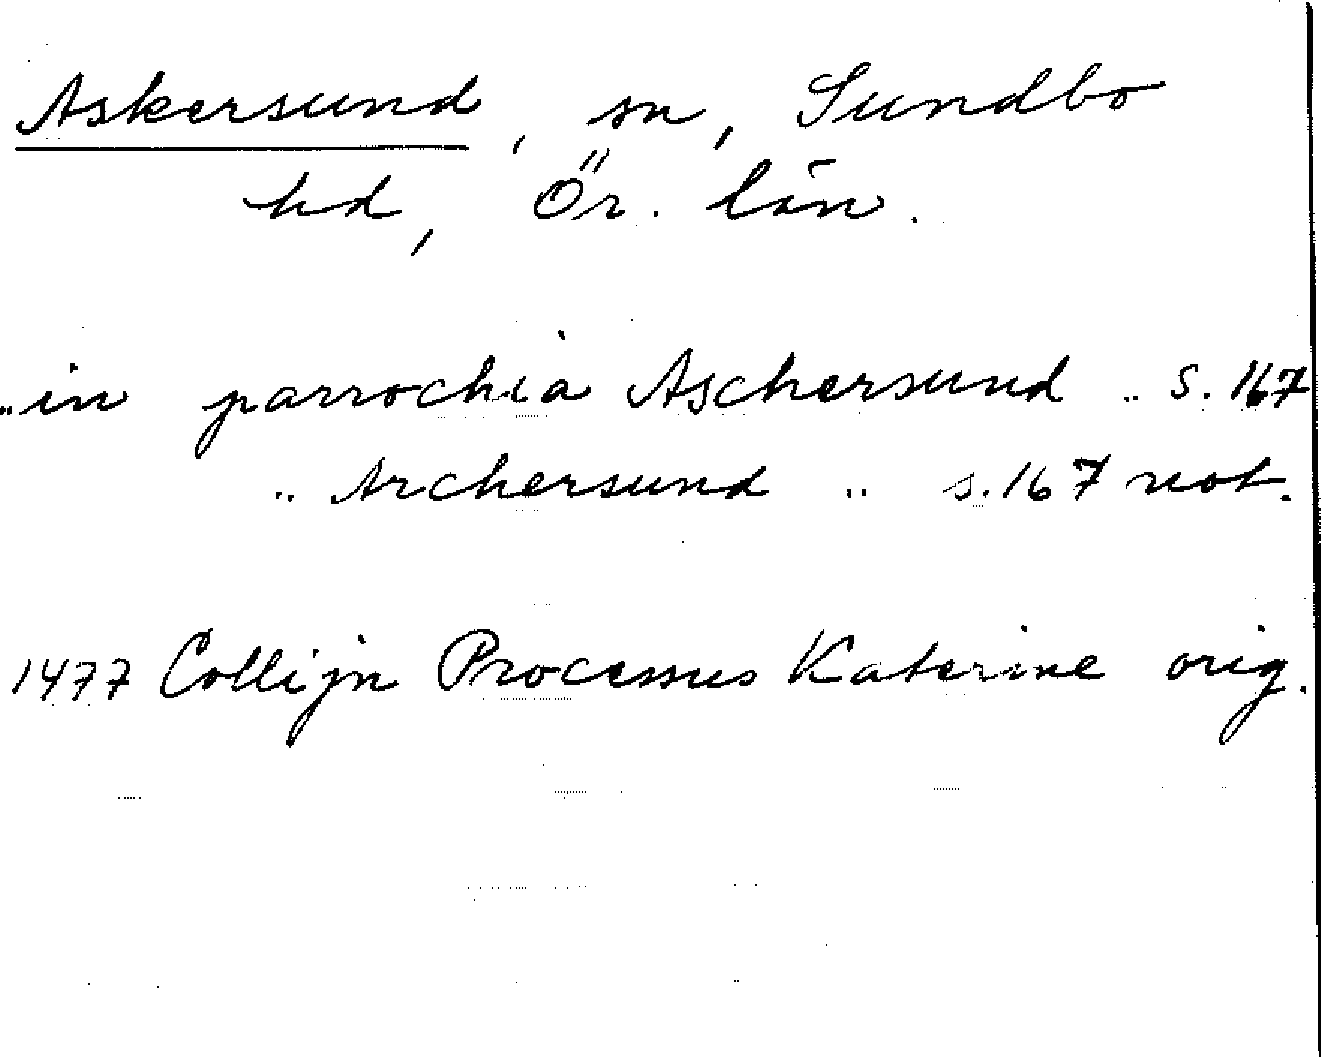 Askersund, sn, Sundbo
hd, Ör. län.
"in parrochia Aschersund" s. 167
"Archersund" s. 167 not.
1477 Collijn Processus Katerine orig.